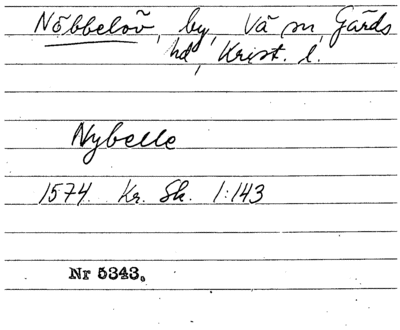 Nöbbelöv, by, Vä sn, Gärds
hd, Krist. l.
Nybelle
1574. Kr. Sk. 1:143
Nr 5343.